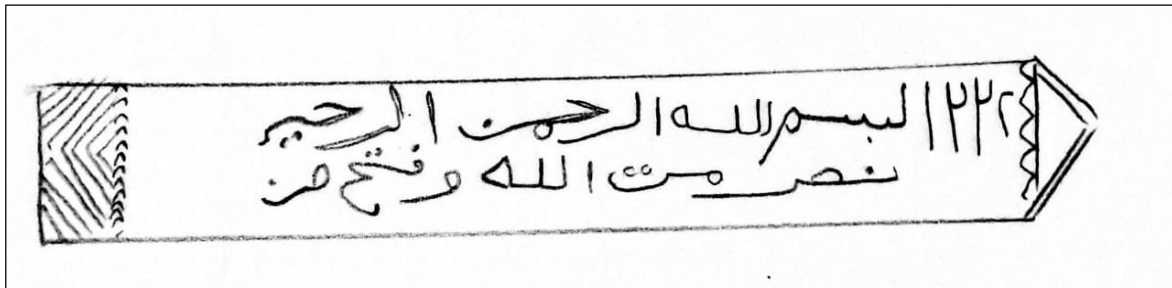 ١٢٢٢ لبسم الله الرحمن الرحيم
نصر من الله وفتح قر